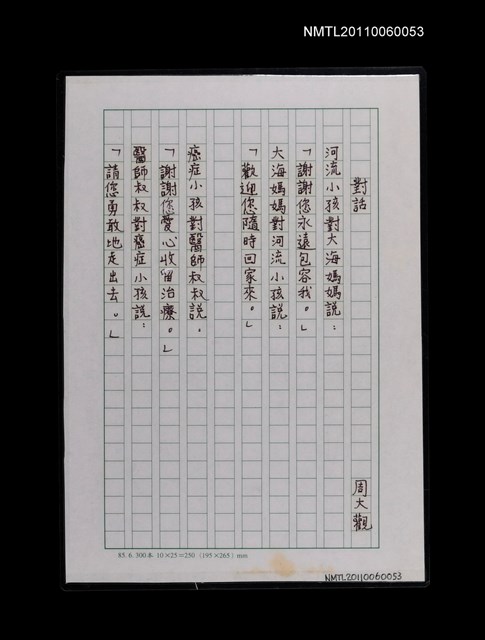 NMTL20110060053
對話
周大觀
河流小孩對大海媽媽說：
「謝謝您永遠包容我。」
大海媽媽對河流小孩說：
「歡迎您隨時回家來。」
癌症小孩對醫師叔叔說，
「謝謝您愛心收留治療。」
醫師叔叔對癌症小孩說：
「請您勇敢地走出去。」
83. 6. 300本 10×25=250（195×265）mm
NMTL20110060053